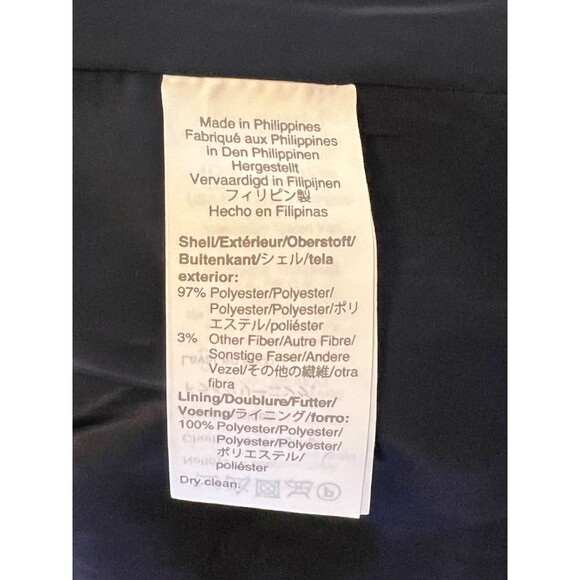 Made in Philippines
Fabriqué aux Philippines
in Den Philippinen
Hergestellt
Vervaardigd in Filipijnen
フィリピン製
Hecho en Filipinas
Shell/Extérieur/Oberstoff/
Buitenkant/シェル/tela
exterior:
97% Polyester/Polyester/
Polyester/Polyester/ポリ
エステル/poliéster
3% Other Fiber/Autre Fibre/
Sonstige Faser/Andere
Vezel/その他の繊維/otra
fibra
Lining/Doublure/Futter/
Voering/ライニング/forro:
100% Polyester/Polyester/
Polyester/Polyester/
ポリエステル/
poliéster
Dry clean.